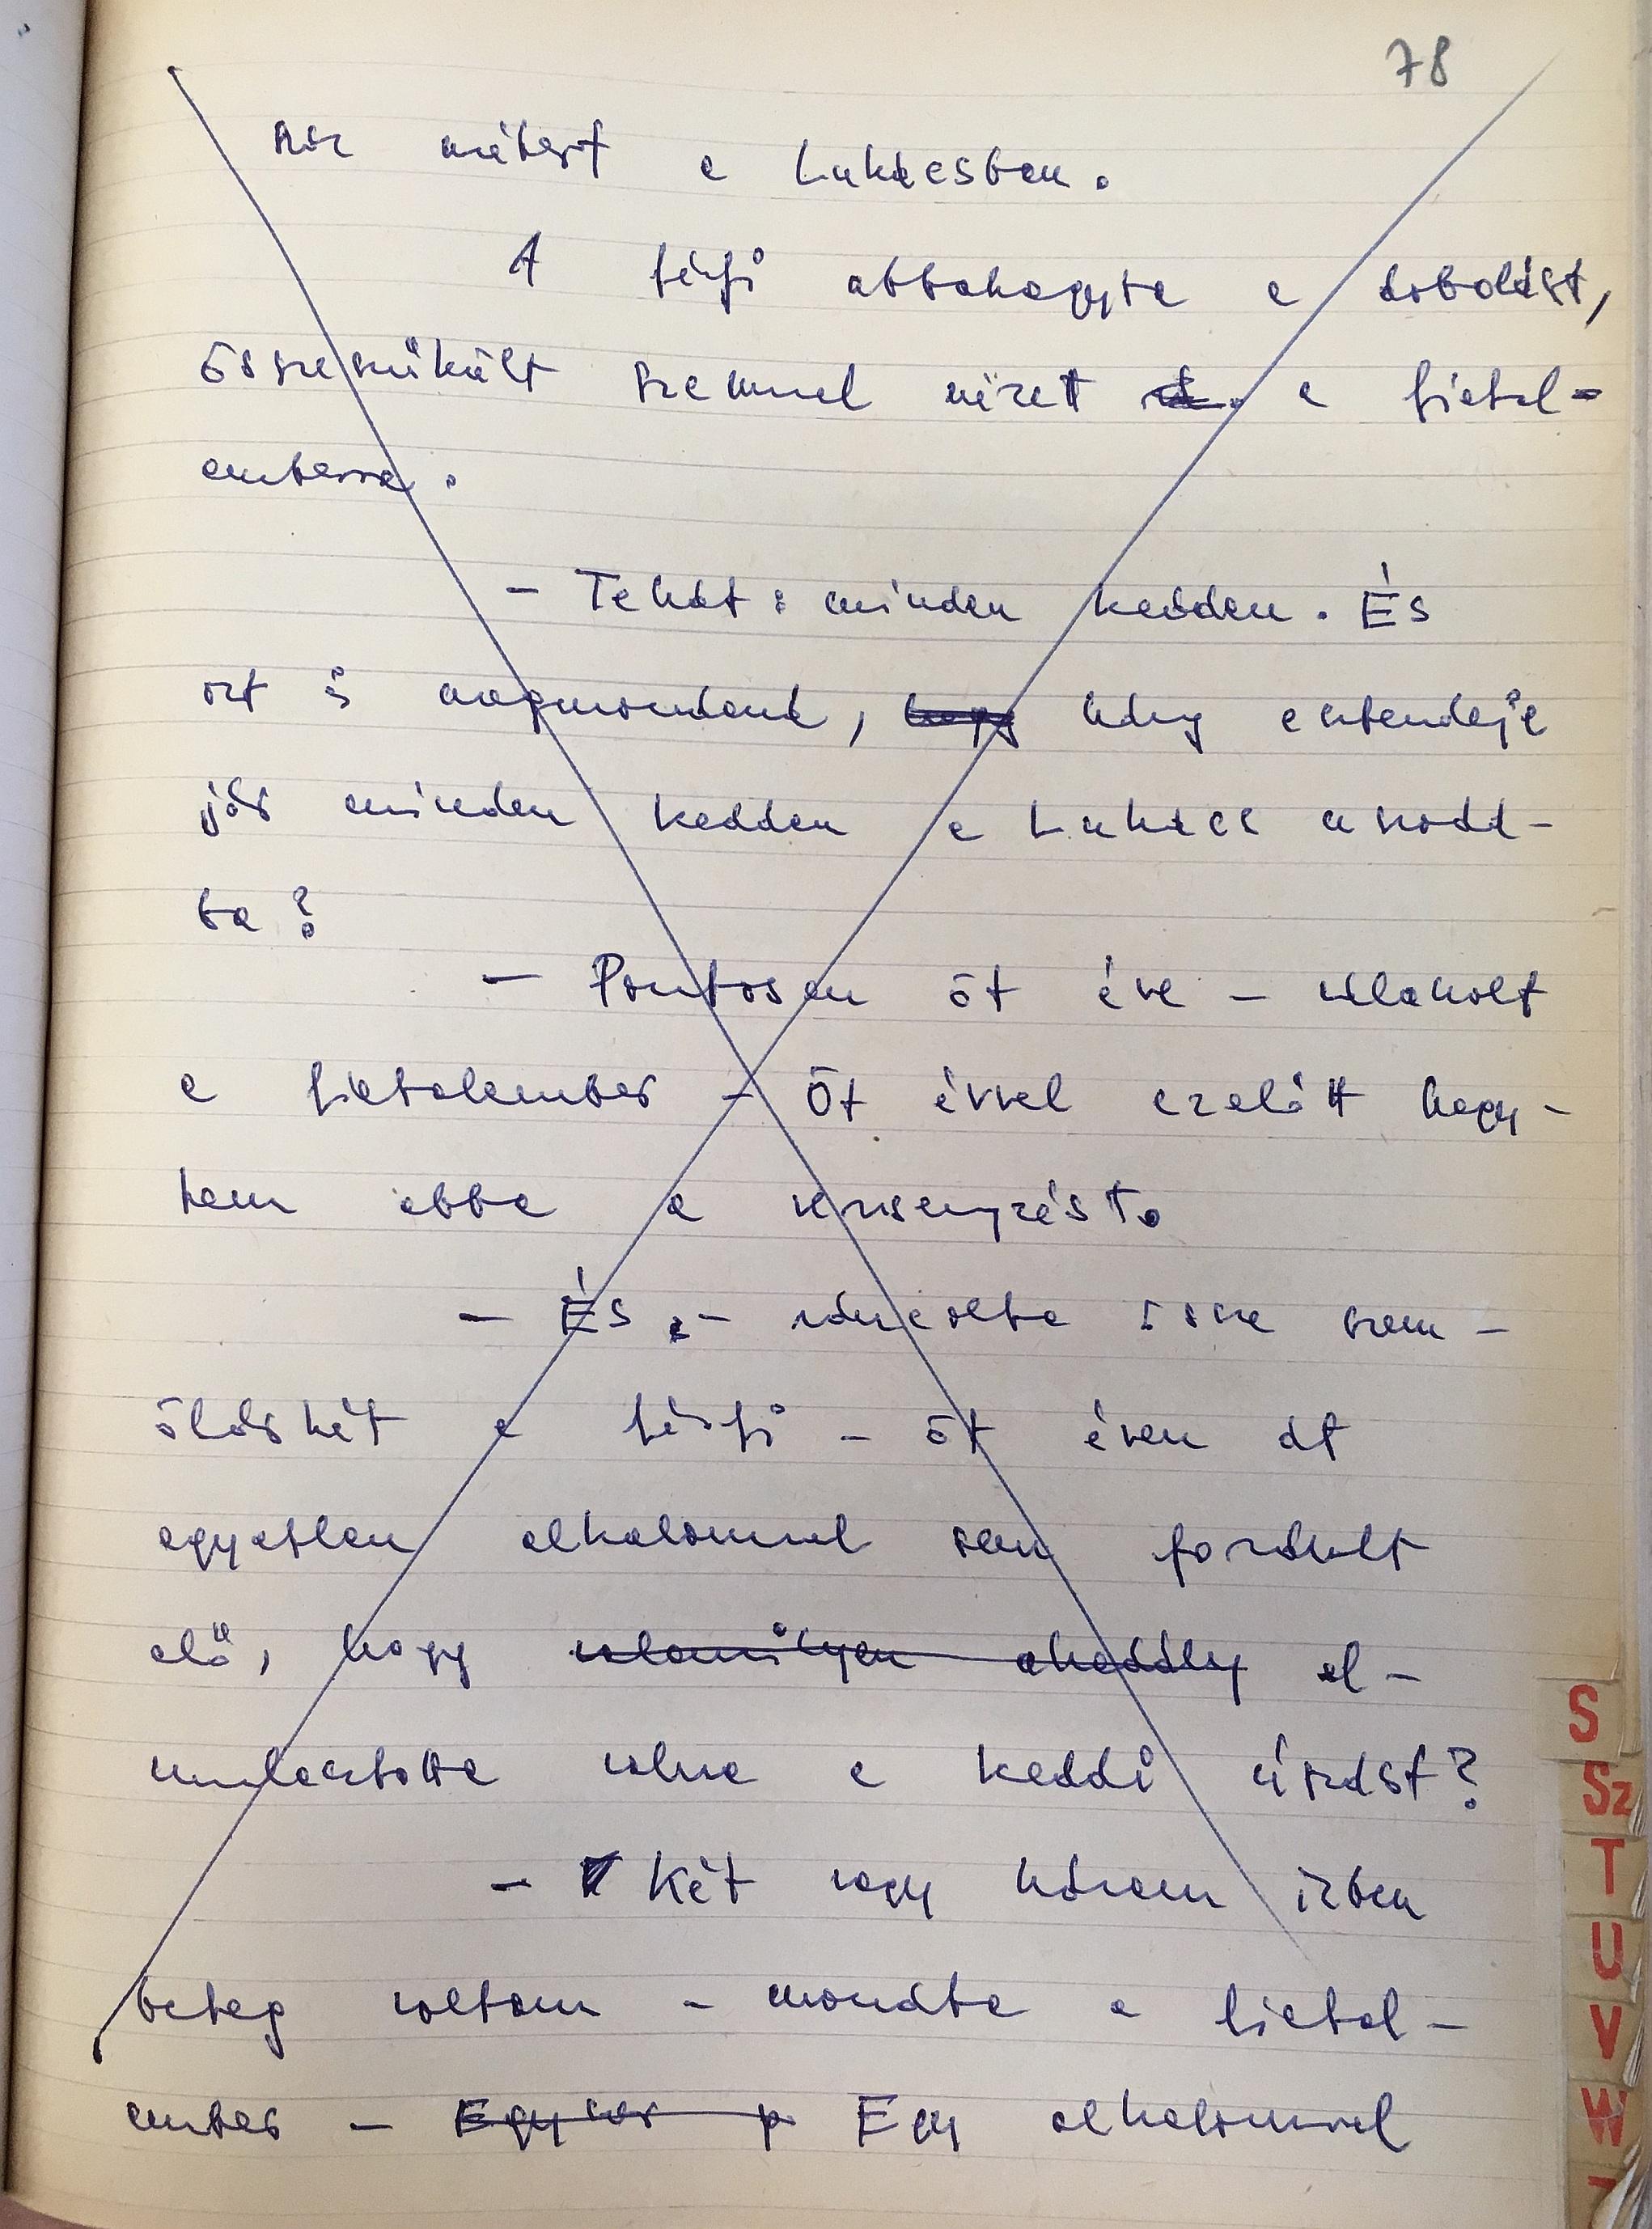 78
ezer métert a Lukácsban.
A férfi abbahagyta a dobolást,
összeszűkült szemmel nézett a fiatal-
emberre.
- Tehát: minden kedden. És
azt is megmondaná, hogy hány esztendeje
jár minden kedden a Lukács uszodá-
ba?
- Pontosan öt éve - válaszolt
a fiatalember - Öt évvel ezelőtt hagy-
tam abba a versenyzést.
- És - ráncolta össze szem-
öldökét a férfi - öt éven át
egyetlen alkalommal sem fordult
elő, hogy valamilyen akadály el-
mulasztotta volna a keddi úszást?
- Két vagy három ízben
beteg voltam - mondta a fiatal-
ember - Egyszer p Egy alkalommal
S
Sz
T
U
V
W